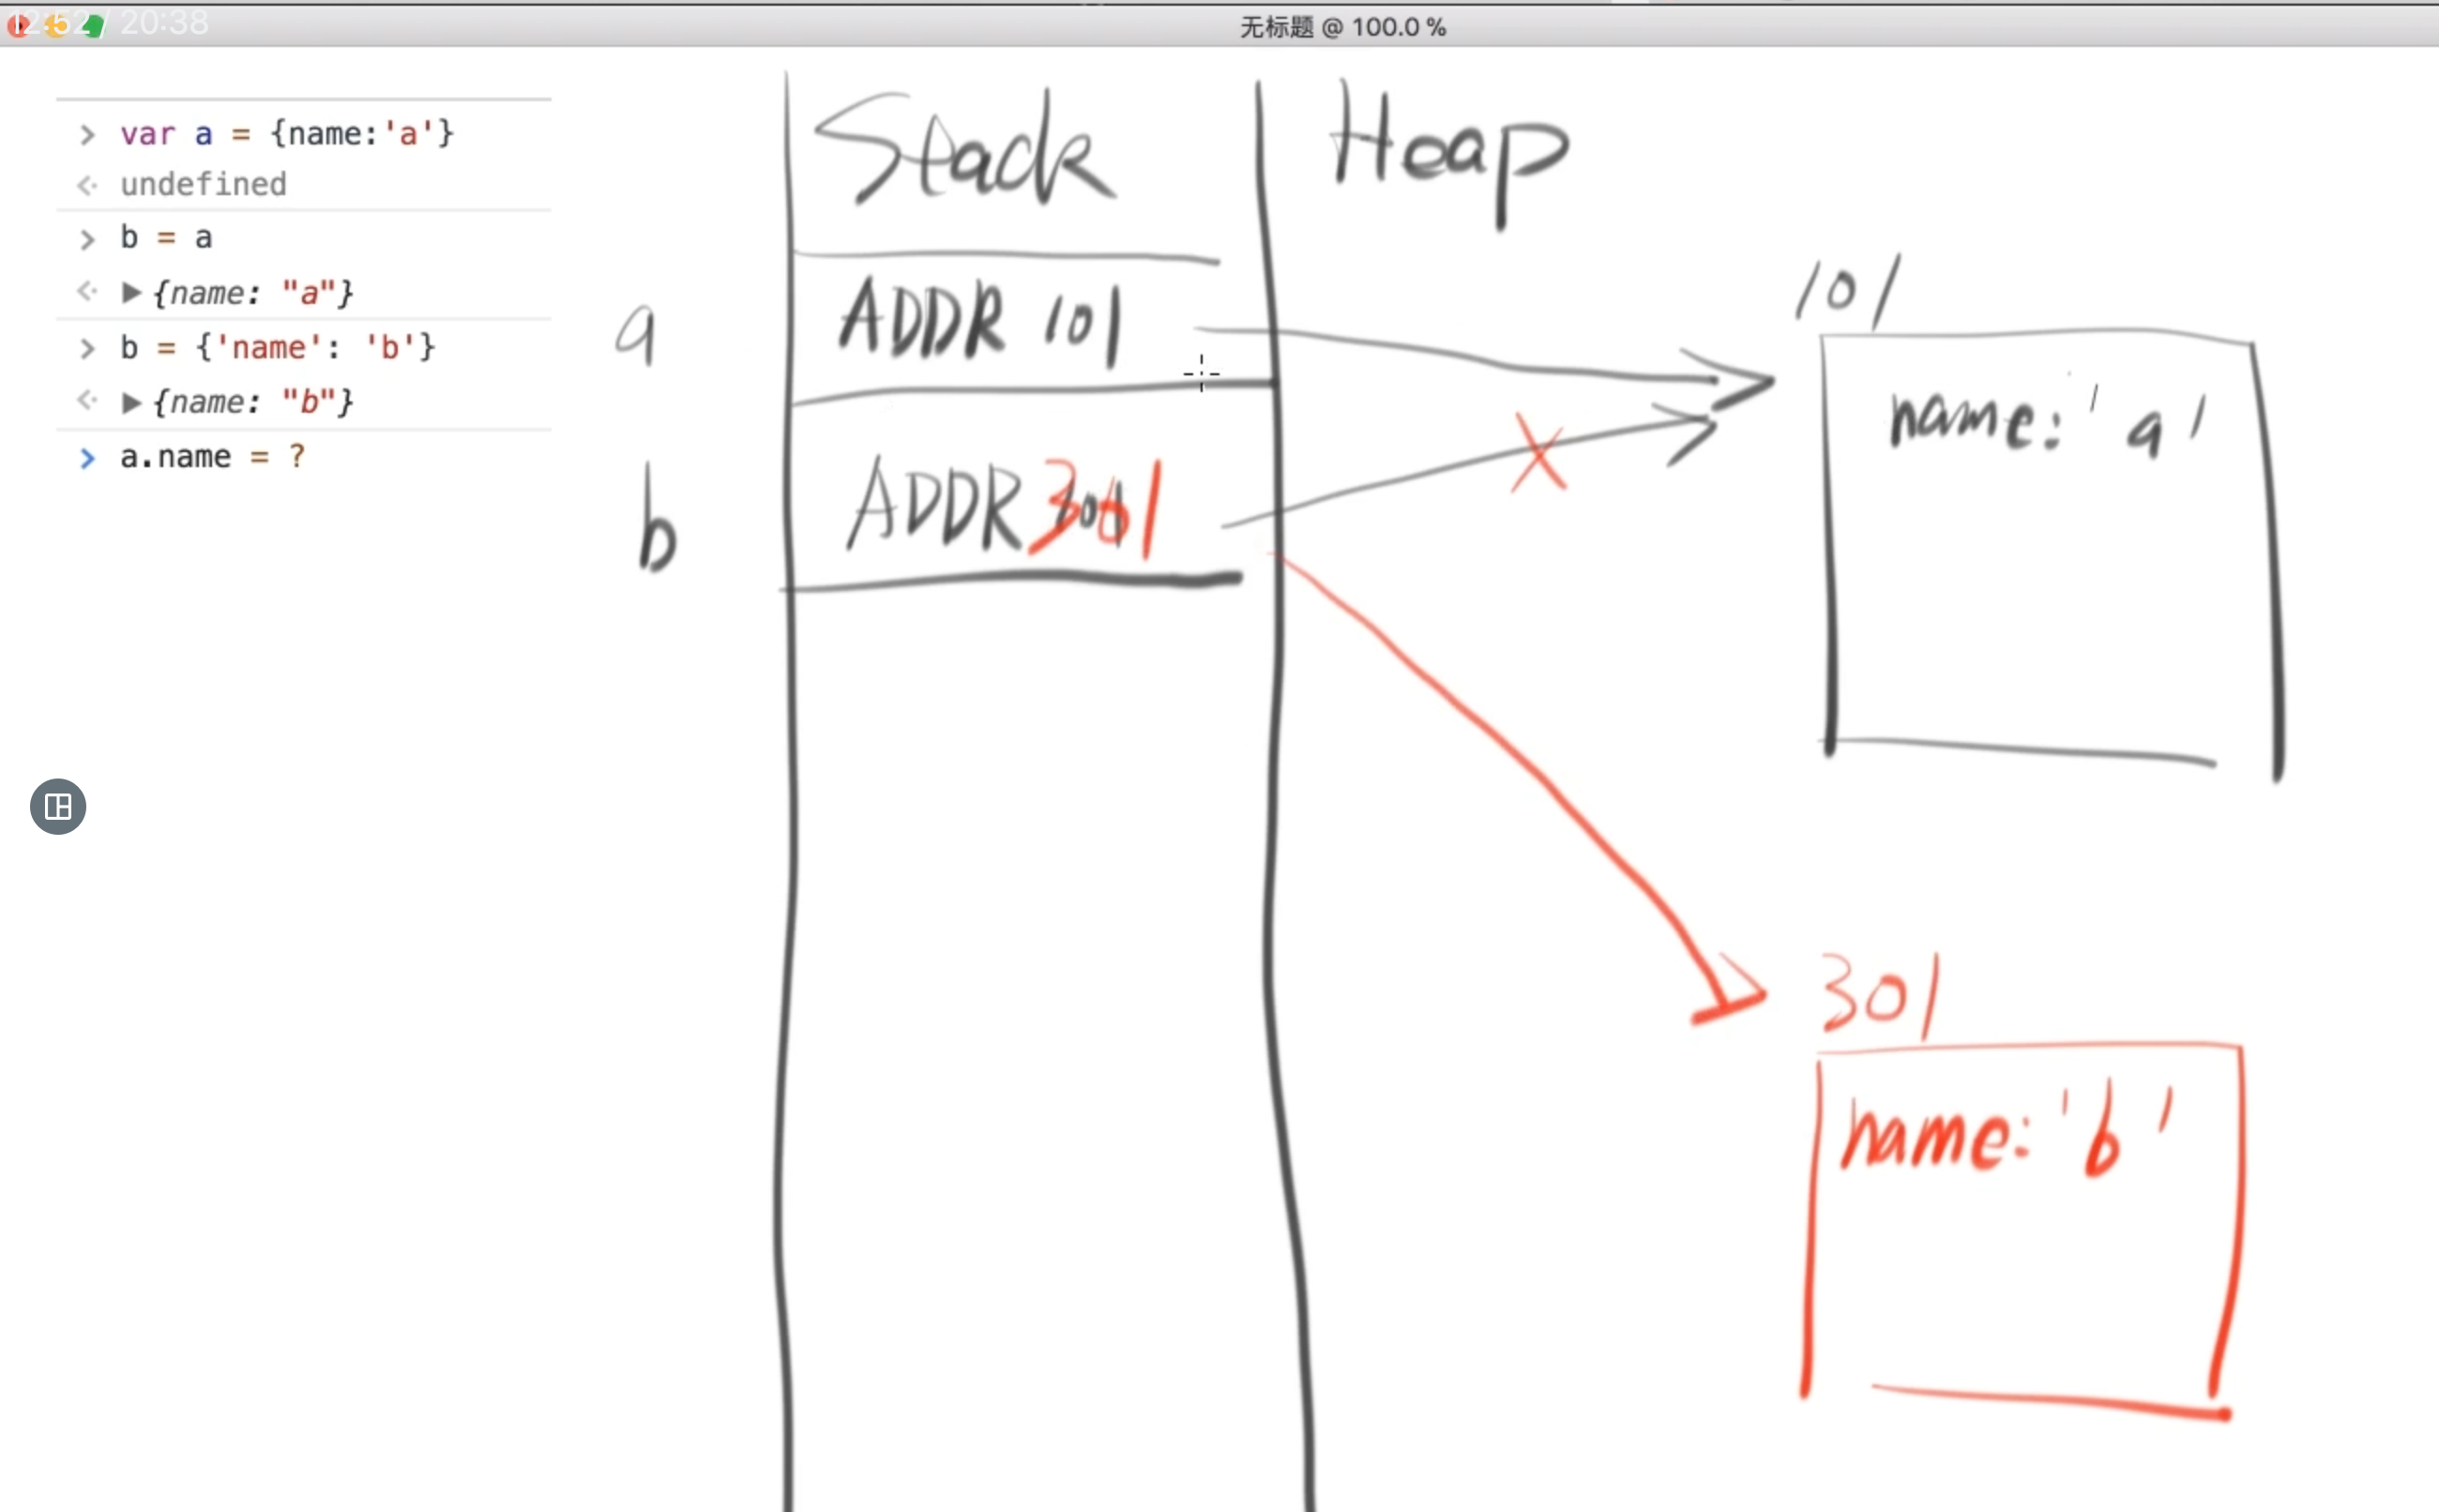 12:52 / 20:38
无标题 @ 100.0 %
> var a = {name:'a'}
undefined
> b = a
{name: "a"}
> b = {'name': 'b'}
{name: "b"}
> a.name = ?
Stack
Heap
a
ADDR 101
b
ADDR 301
101
name: 'a'
301
name: 'b'